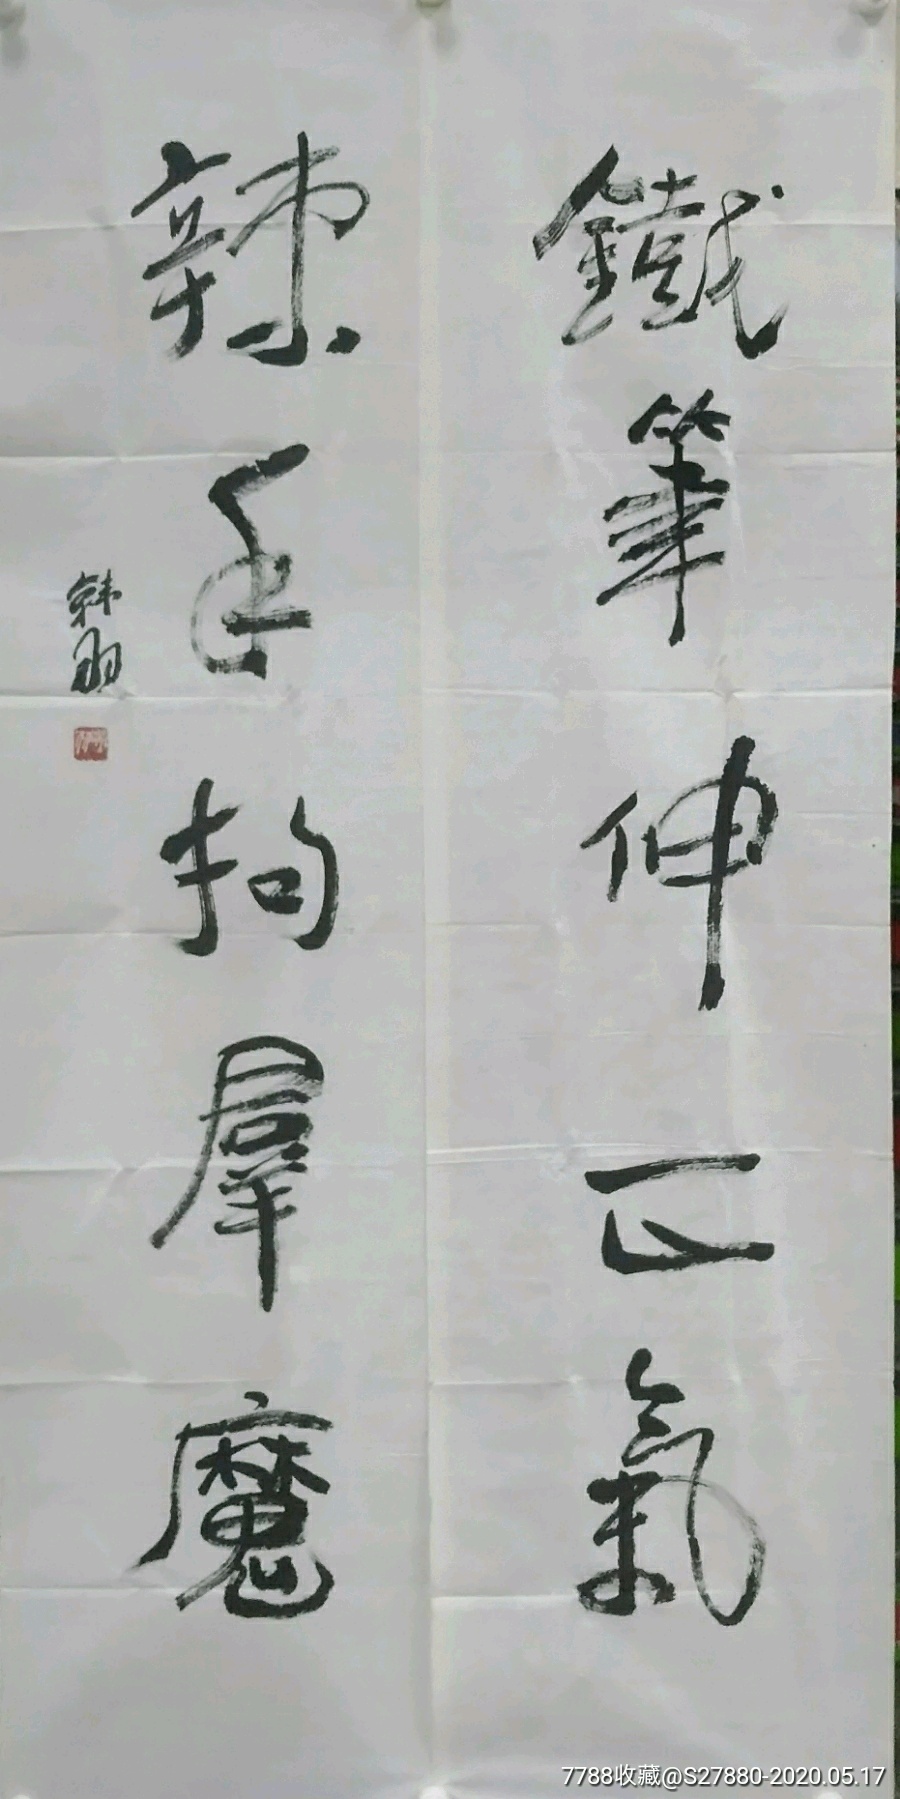 鐵筆伸正氣
辣手拘羣魔
韩羽
7788收藏@S27880-2020.05.17